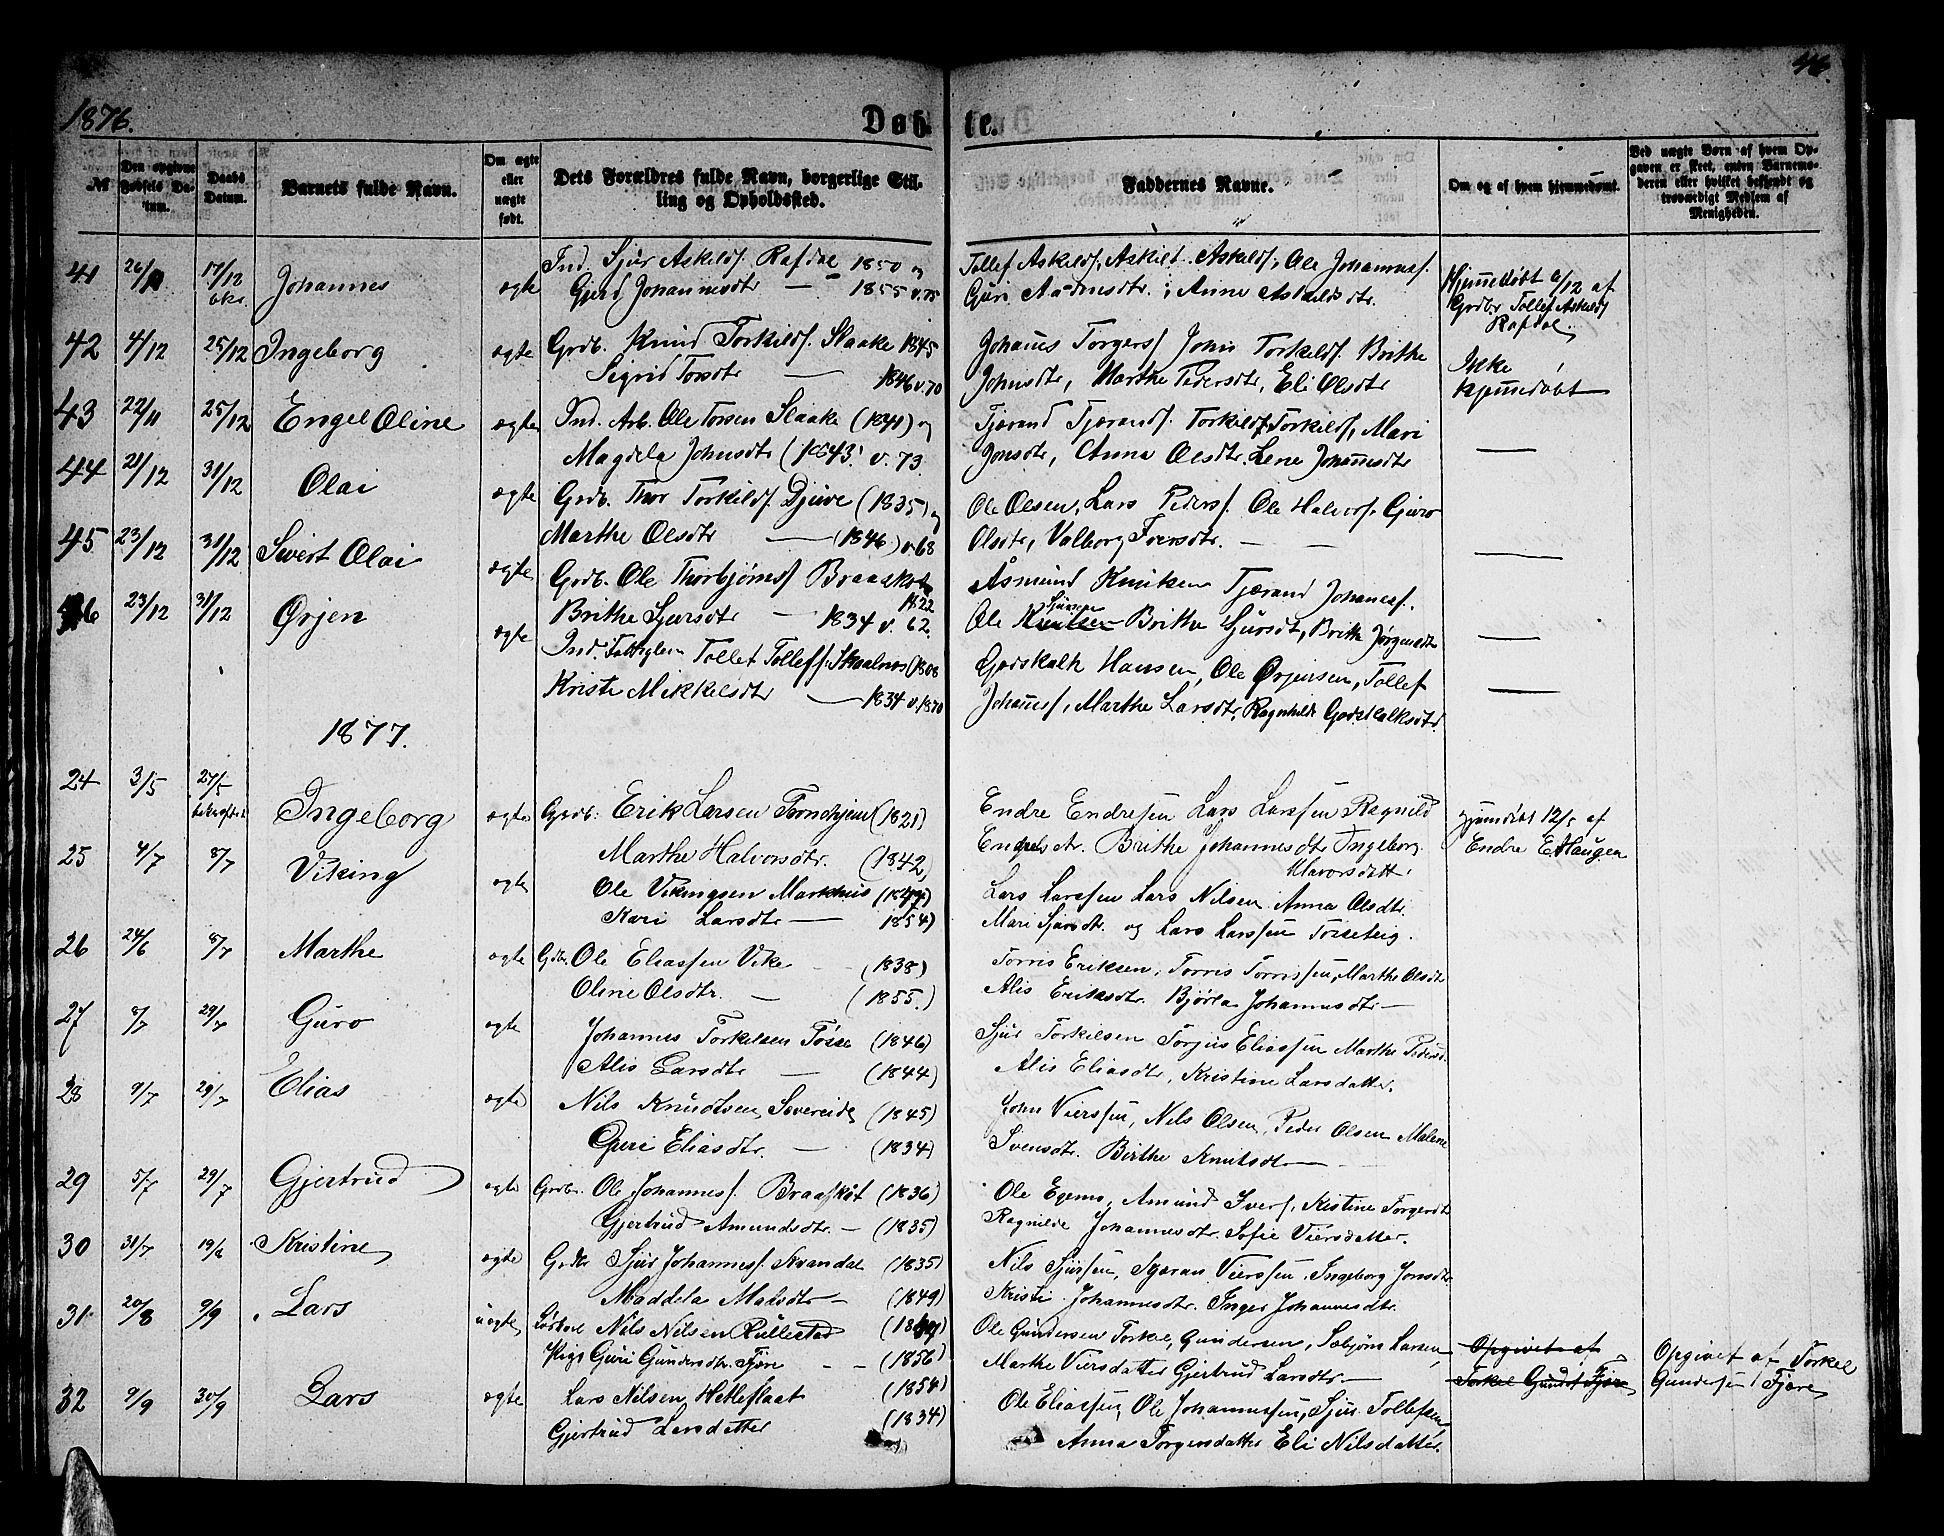 46.
1876.
Døb- te.
№
Den opgivne Fødsels Datum.
Daabs Datum.
Barnets fulde Navn.
Om ægte eller uægte født.
Dets Forældres fulde Navn, borgerlige Stilling og Opholdssted.
Faddernes Navne.
Om og af hvem hjemmedømt.
Ved uægte Børn af hvem Opgaven er skeet, enten Barnemoderen eller hvilket bekjendt og troværdigt Medlem af Menigheden.
41 26/11 17/12 Johannes ægte Ind. Sjur Askilds. Rafdal 1850 og
Gjerd Johannesdtr — 1855 v. 75
Tollef Askilds, Askild Askilds, Ole Johannes.
Guri Aadnesdtr. Anne Askildsdtr.
Hjemmedøbt 6/12 af
Grdbr Tollef Askilds
Rafdal
42 4/12 25/12 Ingeborg ægte Grdb. Knud Torkilds. Slaake 1845
Sigrid Torsdtr — 1846 v. 70
Johannes Torgers. John Torkilds. Brithe
Johnsdtr, Marthe Pedersdtr, Eli Olsdtr
Ikke
hjemmedøbt
43 22/11 25/12 Engel Oline ægte Ind. Arb. Ole Torsen Slaake (1841) og
Magdela Johnsdtr (1843. v. 73.
Tjærand Tjærands. Torkild Torkilds, Mari
Jonsdtr, Anna Olsdtr. Lene Johannesdtr
—
44 21/12 31/12 Olai ægte Grdb. Thor Torkilds. Djuve (1835) og
Marthe Olsdtr — (1846) v. 68
Ole Olsen, Lars Peders. Ole Halvors. Guro
Olsdtr, Valborg Iversdtr. —
—
45 23/12 31/12 Sivert Olai ægte Grdb. Ole Thorbjørns. Braadkot
1822
Brithe Sjursdtr — 1834 v. 62.
Åsmund Knutsen Tjærand Johannes.
Ole Knutsen Sjursen Brithe Sjursdt, Brithe Jørgensdtr
—
46 23/12 31/12 Ørjen ægte Ind. Fattiglem Tollef Tollefs. Skaalnes (1808
Kristi Mikkelsdtr — 1834 v. 1870
Godskalk Hansen, Ole Ørjensen, Tollef
Johannes, Marthe Larsdtr, Ragnhilde Godskalksdtr
—
1877.
24 3/5 27/5 Ingeborg ægte Grdb: Erik Larsen Tornehjem (1821)
Marthe Halvorsdtr. (1842)
Endre Endresen Lars Larssen Ragnild
Endresdtr. Brithe Johannesdtr Ingeborg
Halvorsdatt.
hjemdøbt 12/5 af
Endre E. Haugen
25 4/7 8/7 Viking ægte Ole Vikingsen Markhus
Kari Larsdtr — 1854)
Lars Larssen Lars Nilsen Anna Olsdtr.
Mari Sjursdtr. og Lars Larssen Tosseteig.
26 24/6 8/7 Marthe ægte Gdbr. Ole Eliassen Vike (1838)
Oline Olsdtr. — (1855.)
Torris Eriksen, Torris Torrissen, Marthe Olsdtr
Alis Eriksdtr. Bjørla Johannesdtr —
27 8/7 29/7 Guro ægte Johannes Torkelsen Fosse (1846)
Alis Larsdtr — (1844)
Sjur Torkelsen Torjus Eliassen Marthe Pedersd.
Alis Eliasdtr, Kristine Larsdatter.
28 9/7 29/7 Elias ægte Nils Knudtsen Severeide (1845)
Guri Eliasdtr. — (1834)
John Vierssen, Nils Olsen, Peder Olsen Malene
Svensdtr. Birthe Knutsdtr —
29 5/7 29/7 Gjertrud ægte Grdbr. Ole Johannes. Braaskot (1836)
Gjertrud Amundsdtr. — (1835)
Ole Egemo, Amund Ivers, Kistine Torgersdtr
Ragnilde Johannesdtr Sofie Viersdatter.
30 31/7 19/8 Kristine ægte Grdbr Sjur Johannes. Kvandal (1835)
Maddela Madsdtr — (1849)
Nils Sjursen, Sjæran Vierssen, Ingeborg Jonsdtr
Kristi Johannesdtr. Inger Johannesdtr.
31. 20/8 9/9 Lars uægte Nils Nilsen Rullestad
Pige Guri Gundersdtr. Fjære — (1856)
Ole Gundersen Torkel Gundersen, Sæbjørn Larsen
Marthe Viersdatter Gjertrud Larsdtr —
Opgivet af
Torkel Gunders Fjære
Opgivet af Torkel
Gundersen Fjære
32 9/9 30/9 Lars ægte Lars Nilsen Hetleflaat (1854)
Gjertrud Larsdatter (1834)
Ole Eliassen, Ole Johannessen, Sjur Tollefsen
Anna Torgersdatter Eli Nilsdatter.